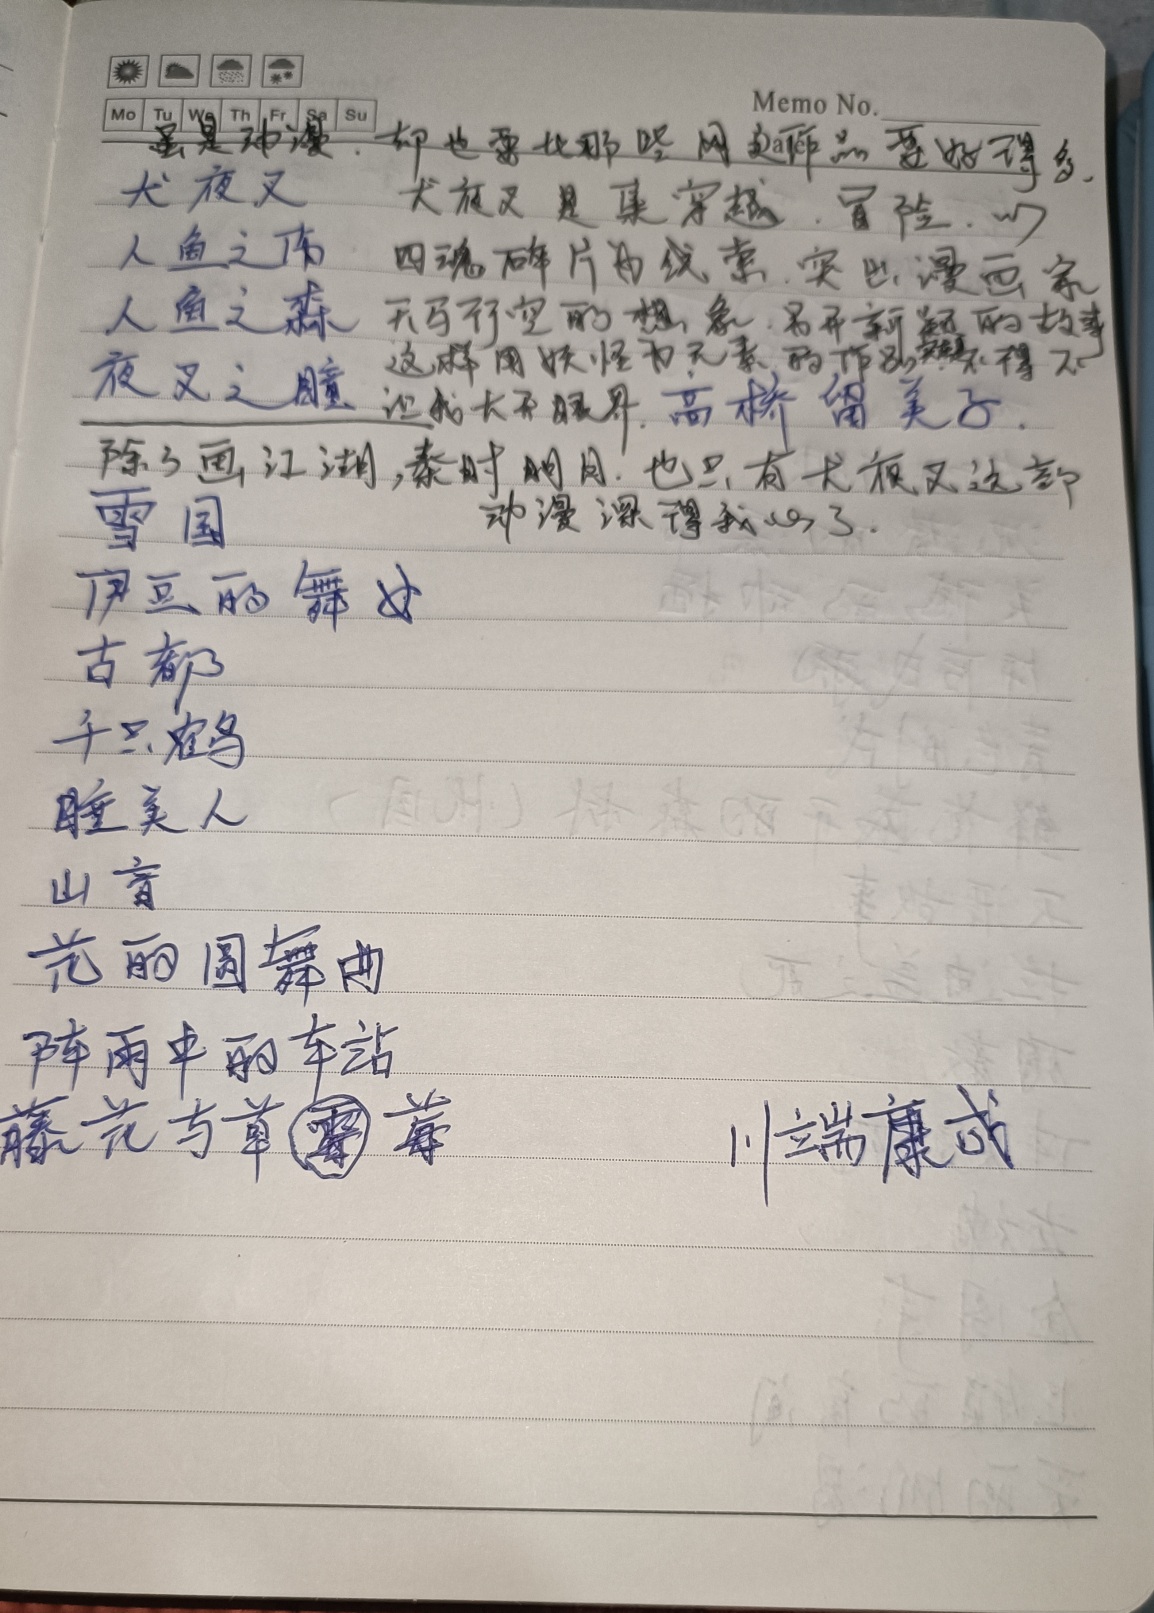 Memo No.
Mo Tu We Th Fr Sa Su
虽是动漫,却也要比那些网文作品要好得多.
犬夜叉 犬夜叉是集穿越.冒险.以
人鱼之伤 四魂碎片为线索.突出漫画家
人鱼之森 天马行空的想象.另开新颖的故事
夜叉之瞳 这样用妖怪为元素的作品 不得不
让我大开眼界.高桥留美子.
除了画江湖,秦时明月.也只有犬夜叉这部
雪国 动漫深得我心了.
伊豆的舞女
古都
千只鹤
睡美人
山音
花的圆舞曲
阵雨中的车站
藤花与草莓 川端康成